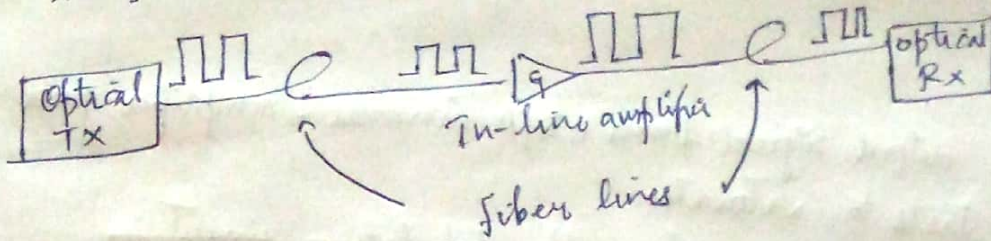 Optical
TX
G
In-line amplifier
optical
Rx
fiber lines